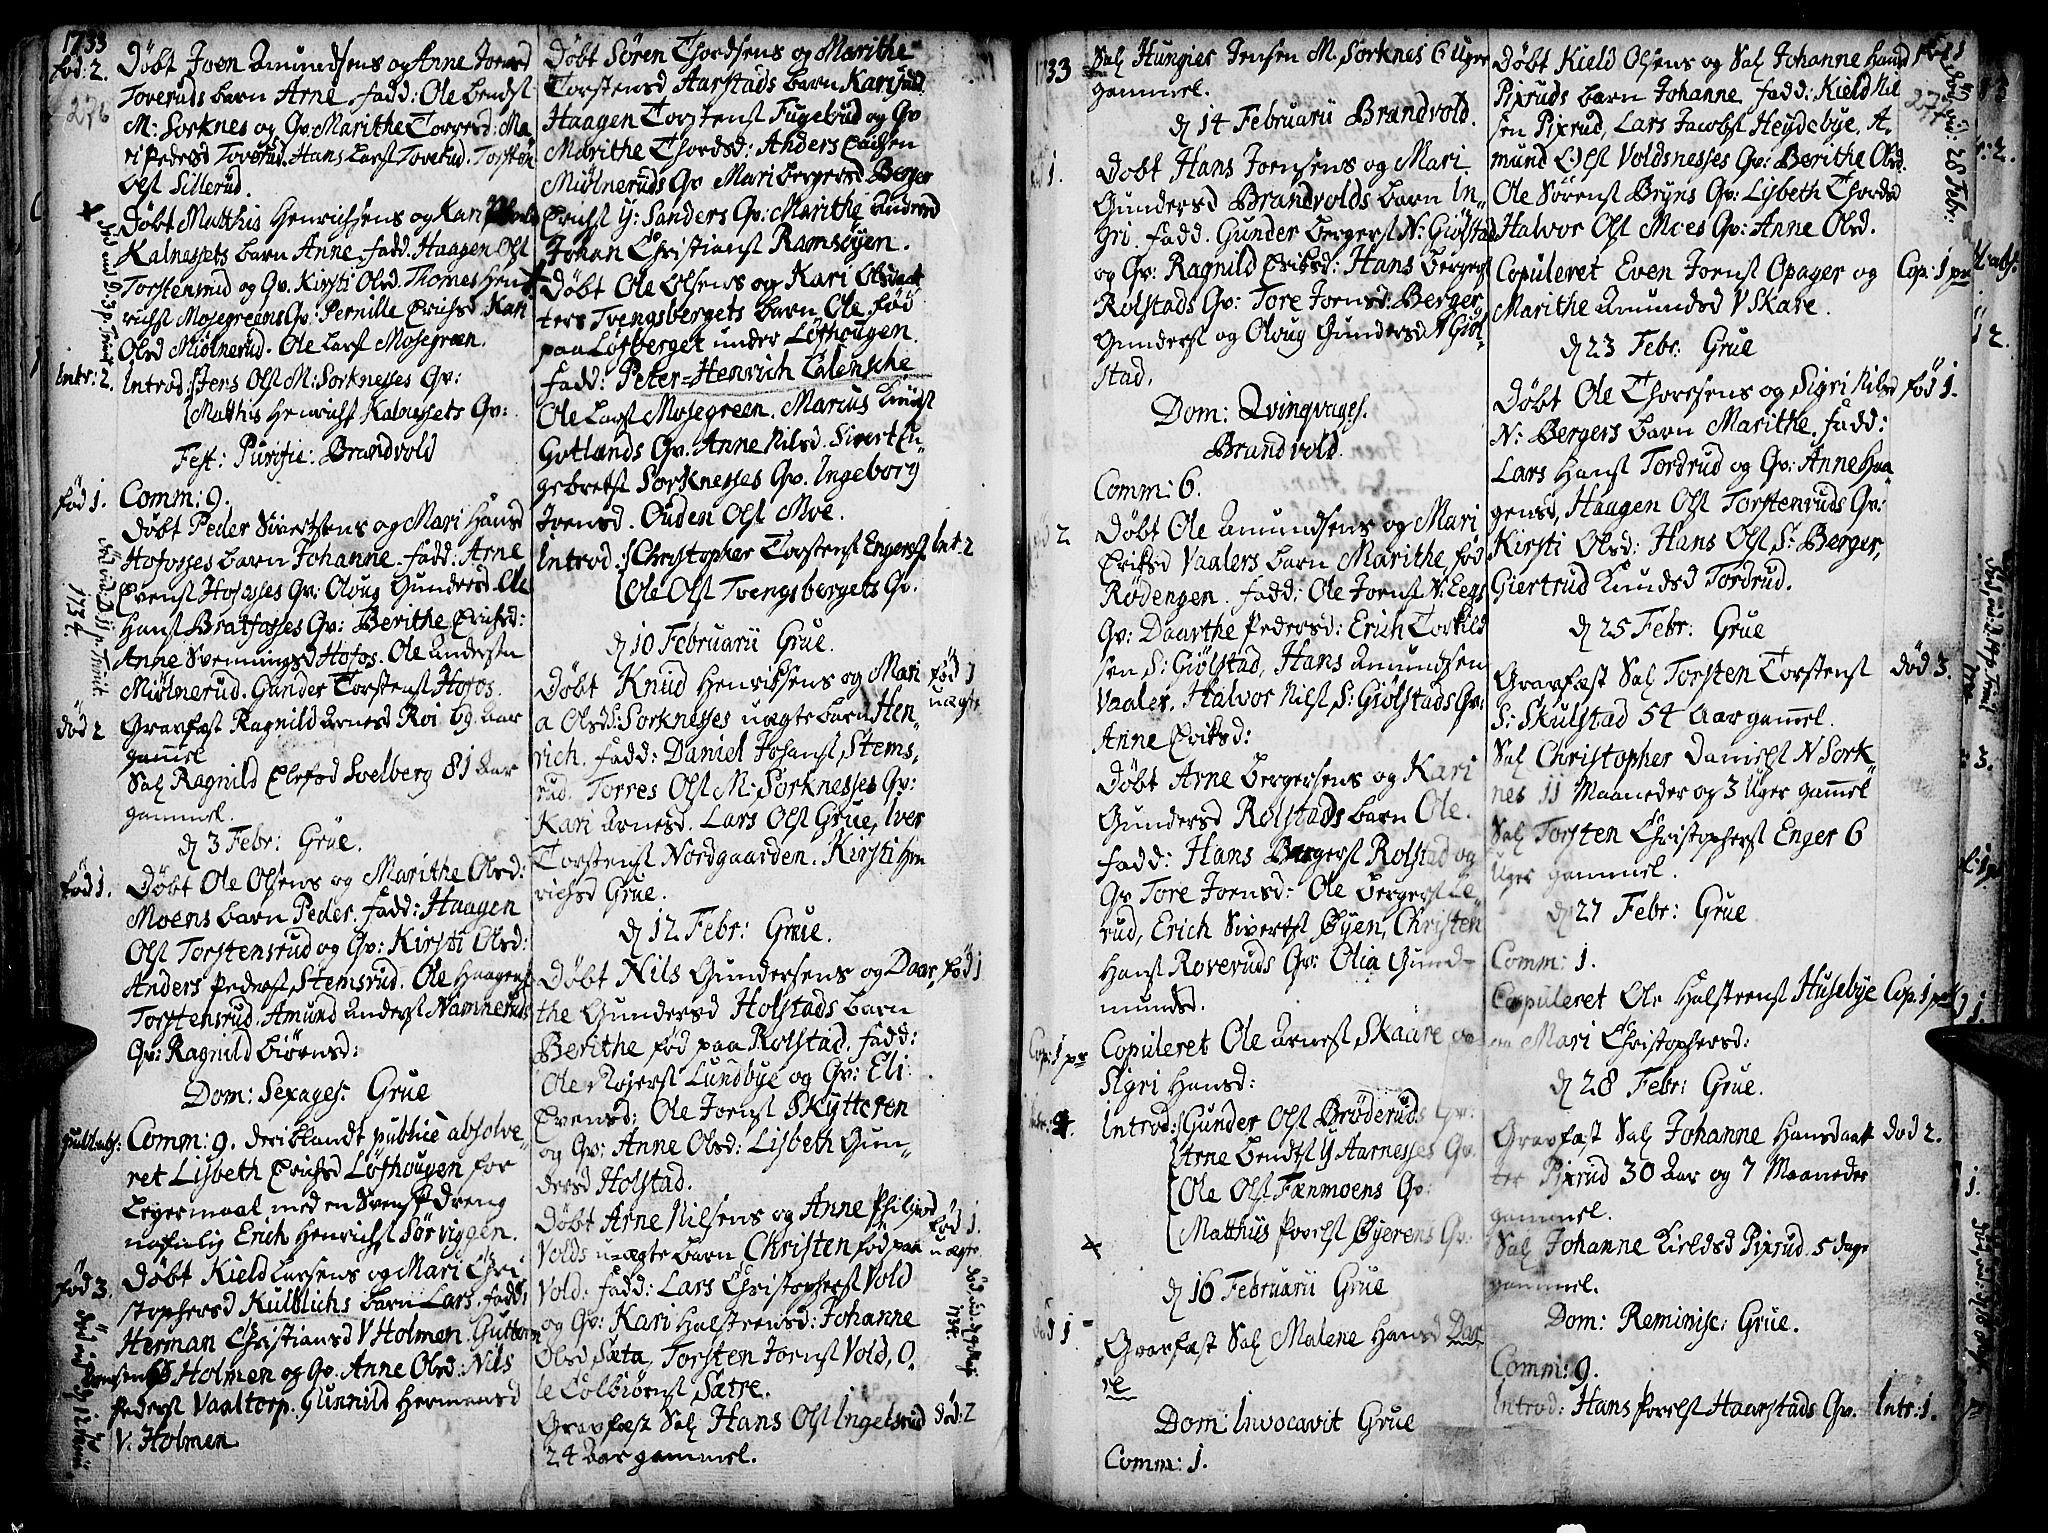 1733
fød: 2.
276
Døbt Joen Amundsens og Anne Joensd
Toveruds barn Arne. fadd: Ole bendst
M: Sorknes og Qv: Marithe Torresd: Ma
ri Pedersd Toverud. Hans Larst Toverud. Torsten
Olst Sillerud.
Døbt Matthis Henrichsens og Kari
Kalnessets barn Anne. fadd: Haagen Olst
Torstensrud og Qv. Kirsti Olsd. Thomes Hen
richst Mosegreens Qv: Pernille Erichsd. Kari
Olsd Miølnerud. Ole Larst Mosegreen.
Intr: 2.
Introd: Jens Olst M: Sorknesses Qv:
Matthis Henrichst Kalnessets Qv:
Fest: Purific: Brandvold
fød 1.
Comm: 9.
Døbt Peder Sivertsens og Mari Hansd
Hofosses barn Johanne. fadd: Arne
Evenst Hofosses Qv: Oloug Gundersd. Ole
Hanst Bratfosses Qv: Berithe Erichsd:
Anne Svenningsd Hofos. Ole Andersen
Miølnerud. Gunder Torstenst Hofos.
1734.
død 2
Gravfæst Ragnild Arnesd Roi 69. Aar
gammel
Sal Ragnild Elefsd Soelberg 81 Aar
gammel.
d 3 Febr: Grue.
fød 1.
Døbt Ole Olsens og Marithe Olsd:
Moens barn Peder. fadd: Haagen
Olst Torstensrud og Qv: Kirsti Olsd:
Anders Pederst Stemsrud. Ole Haagenst
Torstensrud. Amund Anderst Namneruds
Qv: Ragnild Biørnsd:
Dom: Sexages: Grue
publ. abs:
Comm: 9. deriblandt publicè absolve-
ret Lisbeth Erichsd Løfthougen for
Leyermaal med en Svensk dreng
nafnlig Erich Henrichst Sørviggen.
fød 3.
Døbt Kield Larsens og Mari Chri
stophersd Kulblichs barn Lars. fadd:
Herman Christiansd V Holmen. Guttorm
Holmen og Qv. Anne Olsd. Nils
Pederst Vaaltorp. Gunnild Hermansd
V. Holmen.
Døbt Søren Thordsens og Marithe
Torstensd Aarstads barn Kari fadd.
Haagen Torstenst Fugelrud og Qv
Marithe Thordsd: Anders
Miølneruds Qv Mari bergersd Berger
Erichst Y: Sanders Qv: Marithe Andersd
Johan Christianst Ramsøyen.
Døbt Ole Olsens og Kari Olsdaat
ters Tvengsbergets barn Ole. fød
paa Løfberget under Løfthougen.
fadd: Peter-Henrich Calensche
Ole Larst Mosegreen. Marcus Knudst
Gotlands Qv. Anne Nilsd. Sivert En
gebretst Sorknesses Qv. Ingeborg
Joensd. Ouden Olst Moe.
Introd: Christopher Torstenst Engerst Int: 2
Ole Olst Tvengsbergets Qv.
d 10 Februarii Grue.
Døbt Knud Henrichsens og Mari fød 1
a Olsd S: Sorknesses uægte barn Hen- uægte
rich. fadd: Daniel Johanst Stems-
rud. Torres Olst M: Sorknesses Qv:
Kari Arnesd. Lars Olst Grue, Iver
Torstenst Nordgaarden. Kirsti Hen
richsd Grue.
d 12 Febr: Grue.
Døbt Nils Gundersens og Daar, fød 1
the Gundersd Holstads barn
Berithe fød paa Rolstad. fadd:
Ole Rojerst Lundbye og Qv: Eli
Evensd: Ole Jornst Skytteren
og Qv: Anne Olsd: Lisbeth Gun-
dersd Holstad.
Døbt Arne Nilsens og Anne Philipsd fød 1.
Volds uægte barn Christen fød paa uægte
Vold. fadd: Lars Christopherst Vold
og Qv: Kari Halsteensd: Johanne
Olsd Sæta. Torsten Jornst Vold, O-
le Colbiørnst Sætre.
1734.
Gravfæst Sal Hans Olst Ingelsrud død: 2
24 Aar gammel.
1733
Sal Hungnes Jensen M. Sorknes 6 Uger
gammel.
d 14 Februarii Brandvold.
1.
Døbt Hans Jornsens og Mari
Gundersd Brandvolds barn In-
gri. fadd. Gunder Bergerst N: Giølstad
og Qv: Ragnild Eriksd: Hans Bergerst
Rolstads Qv: Tore Jornsd: Berger
Gunderst og Oloug Gundersd N Giøl-
stad.
Dom: Qvinqvages.
Brandvold.
Comm: 6.
2
Døbt Ole Amundsens og Mari
Eriksd Vaalers barn Marithe, fød
Rødengen. fadd: Ole Jornst N: Eegs
Qv: Daarthe Pedersd: Erich Torkild
sen S: Giølstad, Hans Amundsen
Vaaler, Halvor Nilst S: Giølstads Qv:
Anne Eriksd:
Døbt Arne Bergersens og Kari
Gundersd Rolstads barn Ole.
fadd: Hans Bergerst Rolstad og
Qv Tore Jornsd: Ole Bergerst Le-
rud, Erich Sivertst Øyen, Christen
Hanst Roveruds Qv: Olia Gund-
mundsd.
Cop: 1 pr
Copuleret Ole Arnest Skaare og
Sigri Hansd:
Intr: 4.
Introd: Gunder Olst Brøderuds Qv:
Arne Bendtst Y Aarnesses Qv.
Ole Olst Fænmoens Qv:
Matthiis Povelst Øyerens Qv:
d 16 Februarii Grue
død 1
Gravfæst Sal Malene Hansd Dar
re
Dom: Invocavit Grue
Comm: 1.
Døbt Kield Olsens og Sal Johanne Hansd
277
Pixruds barn Johanne. fadd: Kield Nil
sen Pixrud, Lars Jacobst Heydebye, A-
mund Olst Voldsnesses Qv: Berithe Olsd.
Ole Sørenst Bryns Qv: Lisbeth Thordsd
Halvor Olst Moes Qv: Anne Olsd.
28 Febr:
Copuleret Even Jornst Opager og Cop: 1 pr
Marithe Amundsd V Skare.
d 23 Febr: Grue
Døbt Ole Thoresens og Sigri Nilsd fød 1.
N: Bergers barn Marithe. fadd:
Lars Hanst Tordrud og Qv: Anne Haa
gensd, Haagen Olst Torstenruds Qv:
Kirsti Olsd: Hans Olst S: Berger,
Giertrud Knudsd Tordrud.
d 25 Febr: Grue
Gravfæst Sal Torsten Torstenst død 3.
S: Skulstad 54 Aar gamel.
Sal Christopher Danielst N Sork
nes 11 Maaneder og 3 Uger gamel
Sal Torsten Christopherst Enger 6
Uger gammel.
d 27 Febr: Grue
Comm: 1.
Copuleret Ole Halsteenst Husebye Cop. 1 par
og Mari Christophersd:
d 28 Febr: Grue.
Gravfæst Sal Johanne Hansdaat død 2.
ter Pixrud 30 Aar og 7 Maaneder
gammel.
Sal Johanne Kieldsd Pixrud 5 dage
gammel.
Dom: Reminisc: Grue.
Comm: 9.
Introd: Hans Povelst Haarstads Qv. Intr: 1.